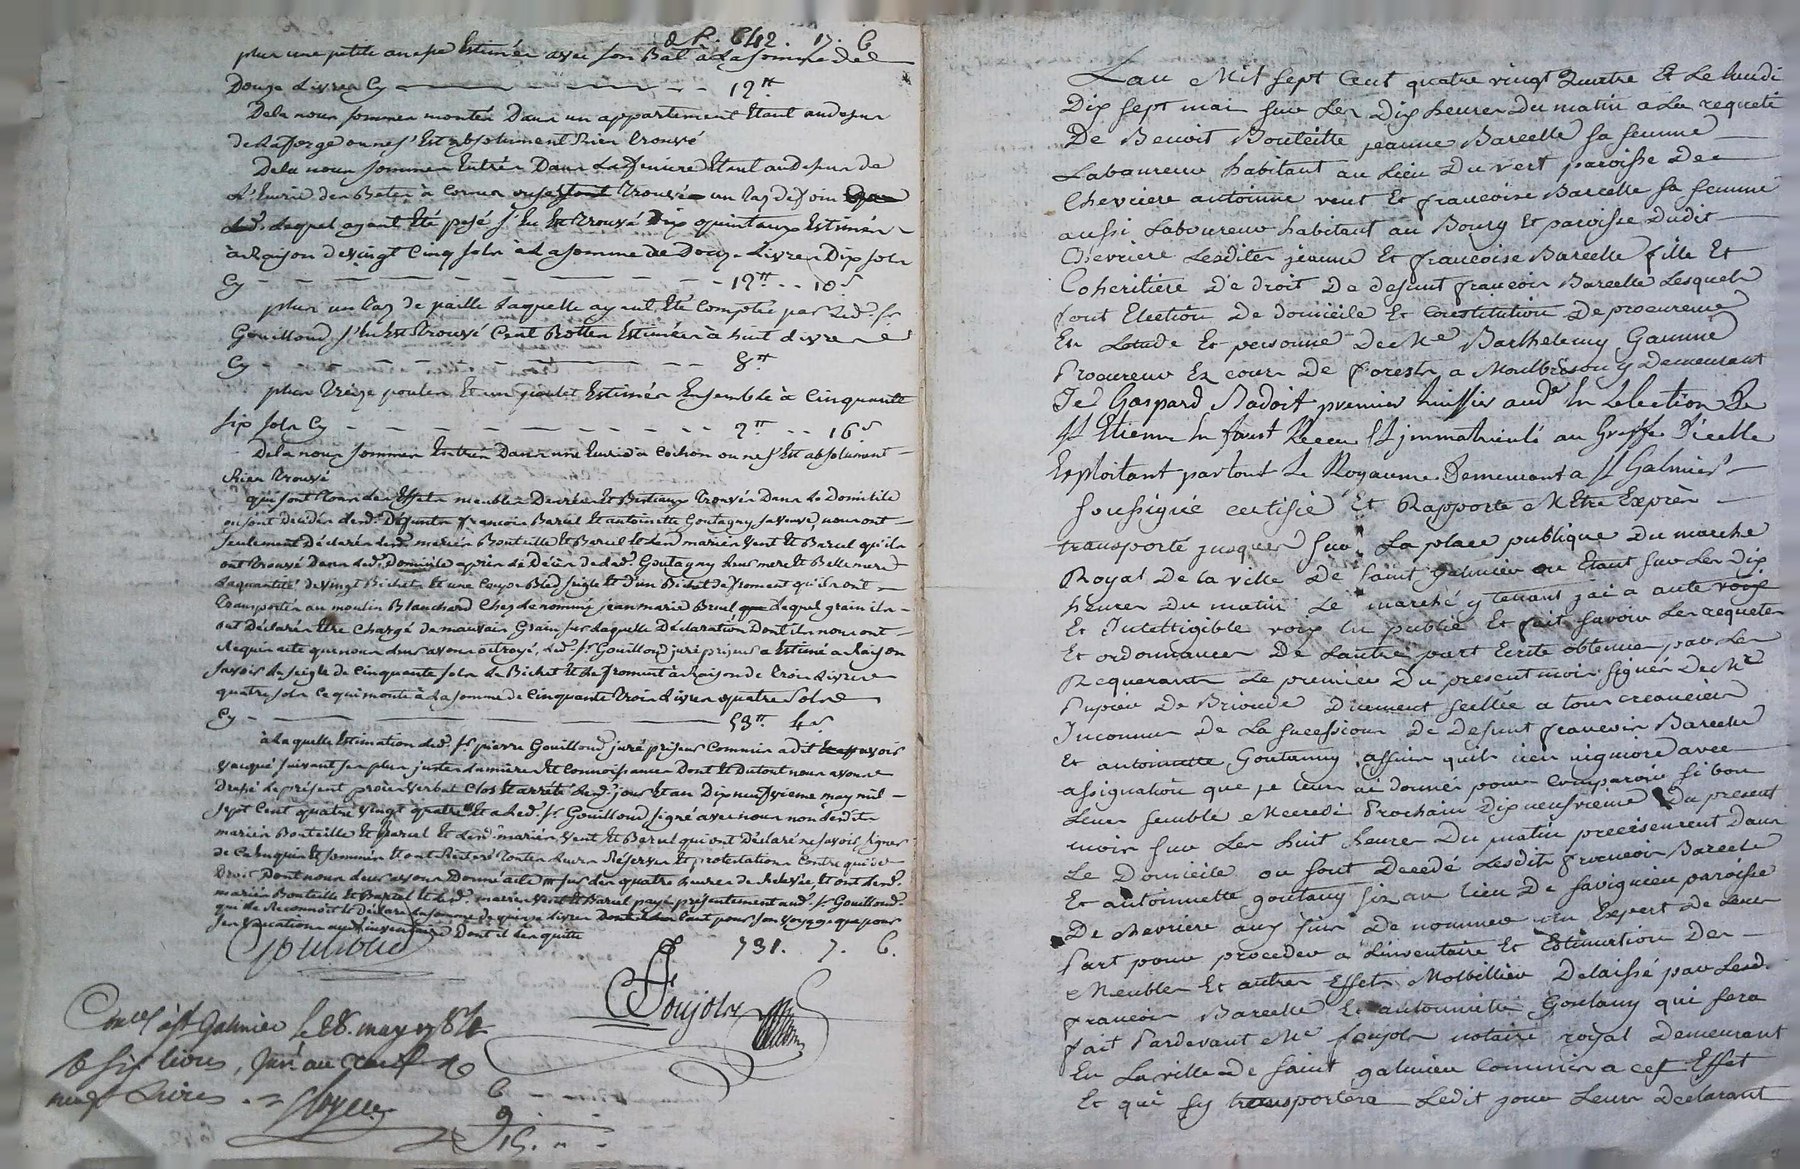 de P. 642. 17. 6
plus une petite anesse Estimée avec son Bat à La somme de
Douze Livres Cy 12ᵗᵗ
Dela nous sommes montés Dans un appartement Etant audesus
de La forge ou ne s'Est absolument Rien trouvé
Dela nous sommes Entrés Dans La feniere Etant au desus de
L'Eurie des Betes à Cornes trouvé un tas de foin
Lequel ayant Eté pesé s'En Est trouvé Dix quintaux Estimés
à Raison de vingt Cinq sols à La somme de Douze Livres Dix sols
Cy 12ᵗᵗ 10ˢ
plus un tas de paille Laquelle ayant Eté Comptée par Led. Sr
Gouilloud s'En Est trouvé Cent Bottes Estimées à huit Livres
Cy 8ᵗᵗ
plus treize poules Et un poulet Estimés Ensemble à Cinquante
six sols Cy 2ᵗᵗ 16ˢ
Dela nous sommes Entrés Dans une Eurie a Cochon ou ne s'Est absolument
Rien trouvé
qui sont tous Les Effets meubles Denrées Et Bestiaux trouvés Dans Le Domicile
ou sont décédés Lesd. Défunts françois Barcel Et antoinette Goutagny sa veuve, nous ont
seulement Déclaré Lesd. mariés Bouteille Et Barcel Et Lesd. mariés Vent Et Barcel qu'ils
ont trouvé Dans Led. Domicile après Le Décès de Lad. Goutagny Leur mere Et Belle mere
La quantité de vingt Bichets Et une Coupe Bled seigle Et d'un Bichet de froment qu'ils ont
transportés au moulin Blanchard Chez Le nommé jean marie Lequel grain ils
ont Déclaré Etre Chargé de mauvais Grain sur Laquelle Déclaration Dont ils nous ont
Requis acte que nous Leurs avons octroyé, Led. Sr Gouilloud juré priseur a Estimé a Raison
savoir Le seigle de Cinquante sols Le Bichet Et Le froment à Raison de trois Livres
quatre sols Ce qui monte à La somme de Cinquante trois Livres quatre Sols
Cy 53ᵗᵗ 4ˢ
à Laquelle Estimation Led. Sr pierre Gouilloud juré priseur Commis a dit avoir
vacqué suivant ses plus justes Lumières Et Connoissances Dont Et Du tout nous avons
Dressé Le présent procès verbal Clos Et arrêté Lesd. jour Et an Dix neufvieme may mil
sept Cent quatre vingt quatre Et a Led. Sr Gouilloud signé avec nous non Lesdits
mariés Bouteille Et Barcel Et Lesd. mariés Vent Et Barcel qui ont Déclaré ne savoir signer
de Ce Enquis Et sommés Et ont Réitéré toutes Leurs Réserves Et protestations Contre qui de
Droit Dont nous Leurs avons Donné acte sur Les quatre heures de Relevée, Et ont Lesd.
mariés Bouteille Et Barcel Et Lesd. mariés Vent Et Barcel payé présentement aud. Sr Gouilloud
qui Le Reconnoit Et Déclare La somme de quinze Livres tant pour son voyage que pour
ses vacations aud. inventaire Dont il Les quitte
Gouilloud
731. 7. 6.
Soujols
à St Galmier le 28. may 1784
six livres,
neuf Livres
6
9
15.
Lan Mil sept Cent quatre vingt Quatre Et Le lundi
Dix sept mai sur Les Dix heures du matin a La requete
De Benoit Bouteille jeanne Barcelle sa femme
Laboureur habitant au Lieu Du vert paroisse De
Chevriere antoinne vent Et francoise Barcelle sa femme
aussi Laboureur habitant au Bourg Et paroisse Dudit
Chevriere Lesdites jeanne Et francoise Barcelle fille Et
Coheritiere De droit De defunt francois Barcelle Lesquels
font Election De domicile Et Constitution De procureur
En Letude Et personne De Me Barthelemy Gamme
Procureur Ez cours De forests a Montbrison y Demeurant
Je Gaspard Nadoit premier huissier aud. En Lélection De
St Etienne En forest Receu Et jmmatriculé au Greffe D'icelle
Exploitant partout Le Royaume Demeurant a St Galmier
soussigné certifie Et Rapporte Mêtre Exprès
transporté jusques sur La place publique Du marche
Royal De la ville De saint Galmier ou Etant sur Les Dix
heures Du matin Le marché y tenant jai a aute voix
Et Intelligible voix lu publié Et fait savoir Les requetes
Et ordonnances De Lautre part Ecrite obtenues par Les
Requerants Le premier Du present mois signée De Me
De Brioude Duement scellée a tous creanciers
Inconnus De La sucession De Defunt francois Barcelle
Et antoinette Goutanny affin quils nen nignore avec
assignation que je leur ai donnée pour comparoir si bon
Leur semble Mecredi Prochain Dixneufvieme Du present
mois sur Les huit heures Du matin precisement Dans
Le Domicile ou sont Decedé Lesdits francois Barcelle
Et antoinnette goutany six au lieu De savignieu paroisse
De chevriere aux fins De nommer un Expert De Leur
Part pour proceder a Linventaire Et Estimation Des
Meubles Et autres Effets Mobilliers Delaissé par Lesd.
francois Barcelle Et antoinnette Goutany qui sera
fait Pardevant Me soujols notaire royal Demeurant
En La ville De saint galmier Commis a cet Effet
Et qui sy transportera Ledit jour Leurs Declarant